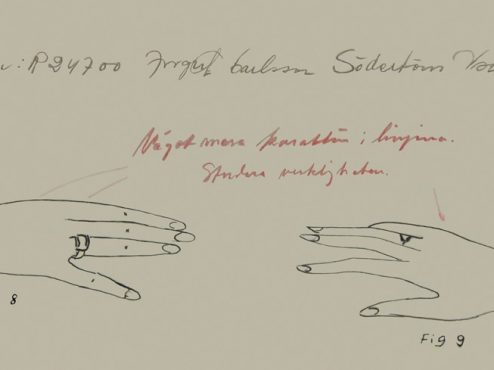 : R24700 Carlsson Södertörns
Något mera karaktär i linjerna.
Studera verkligheten.
8
Fig 9